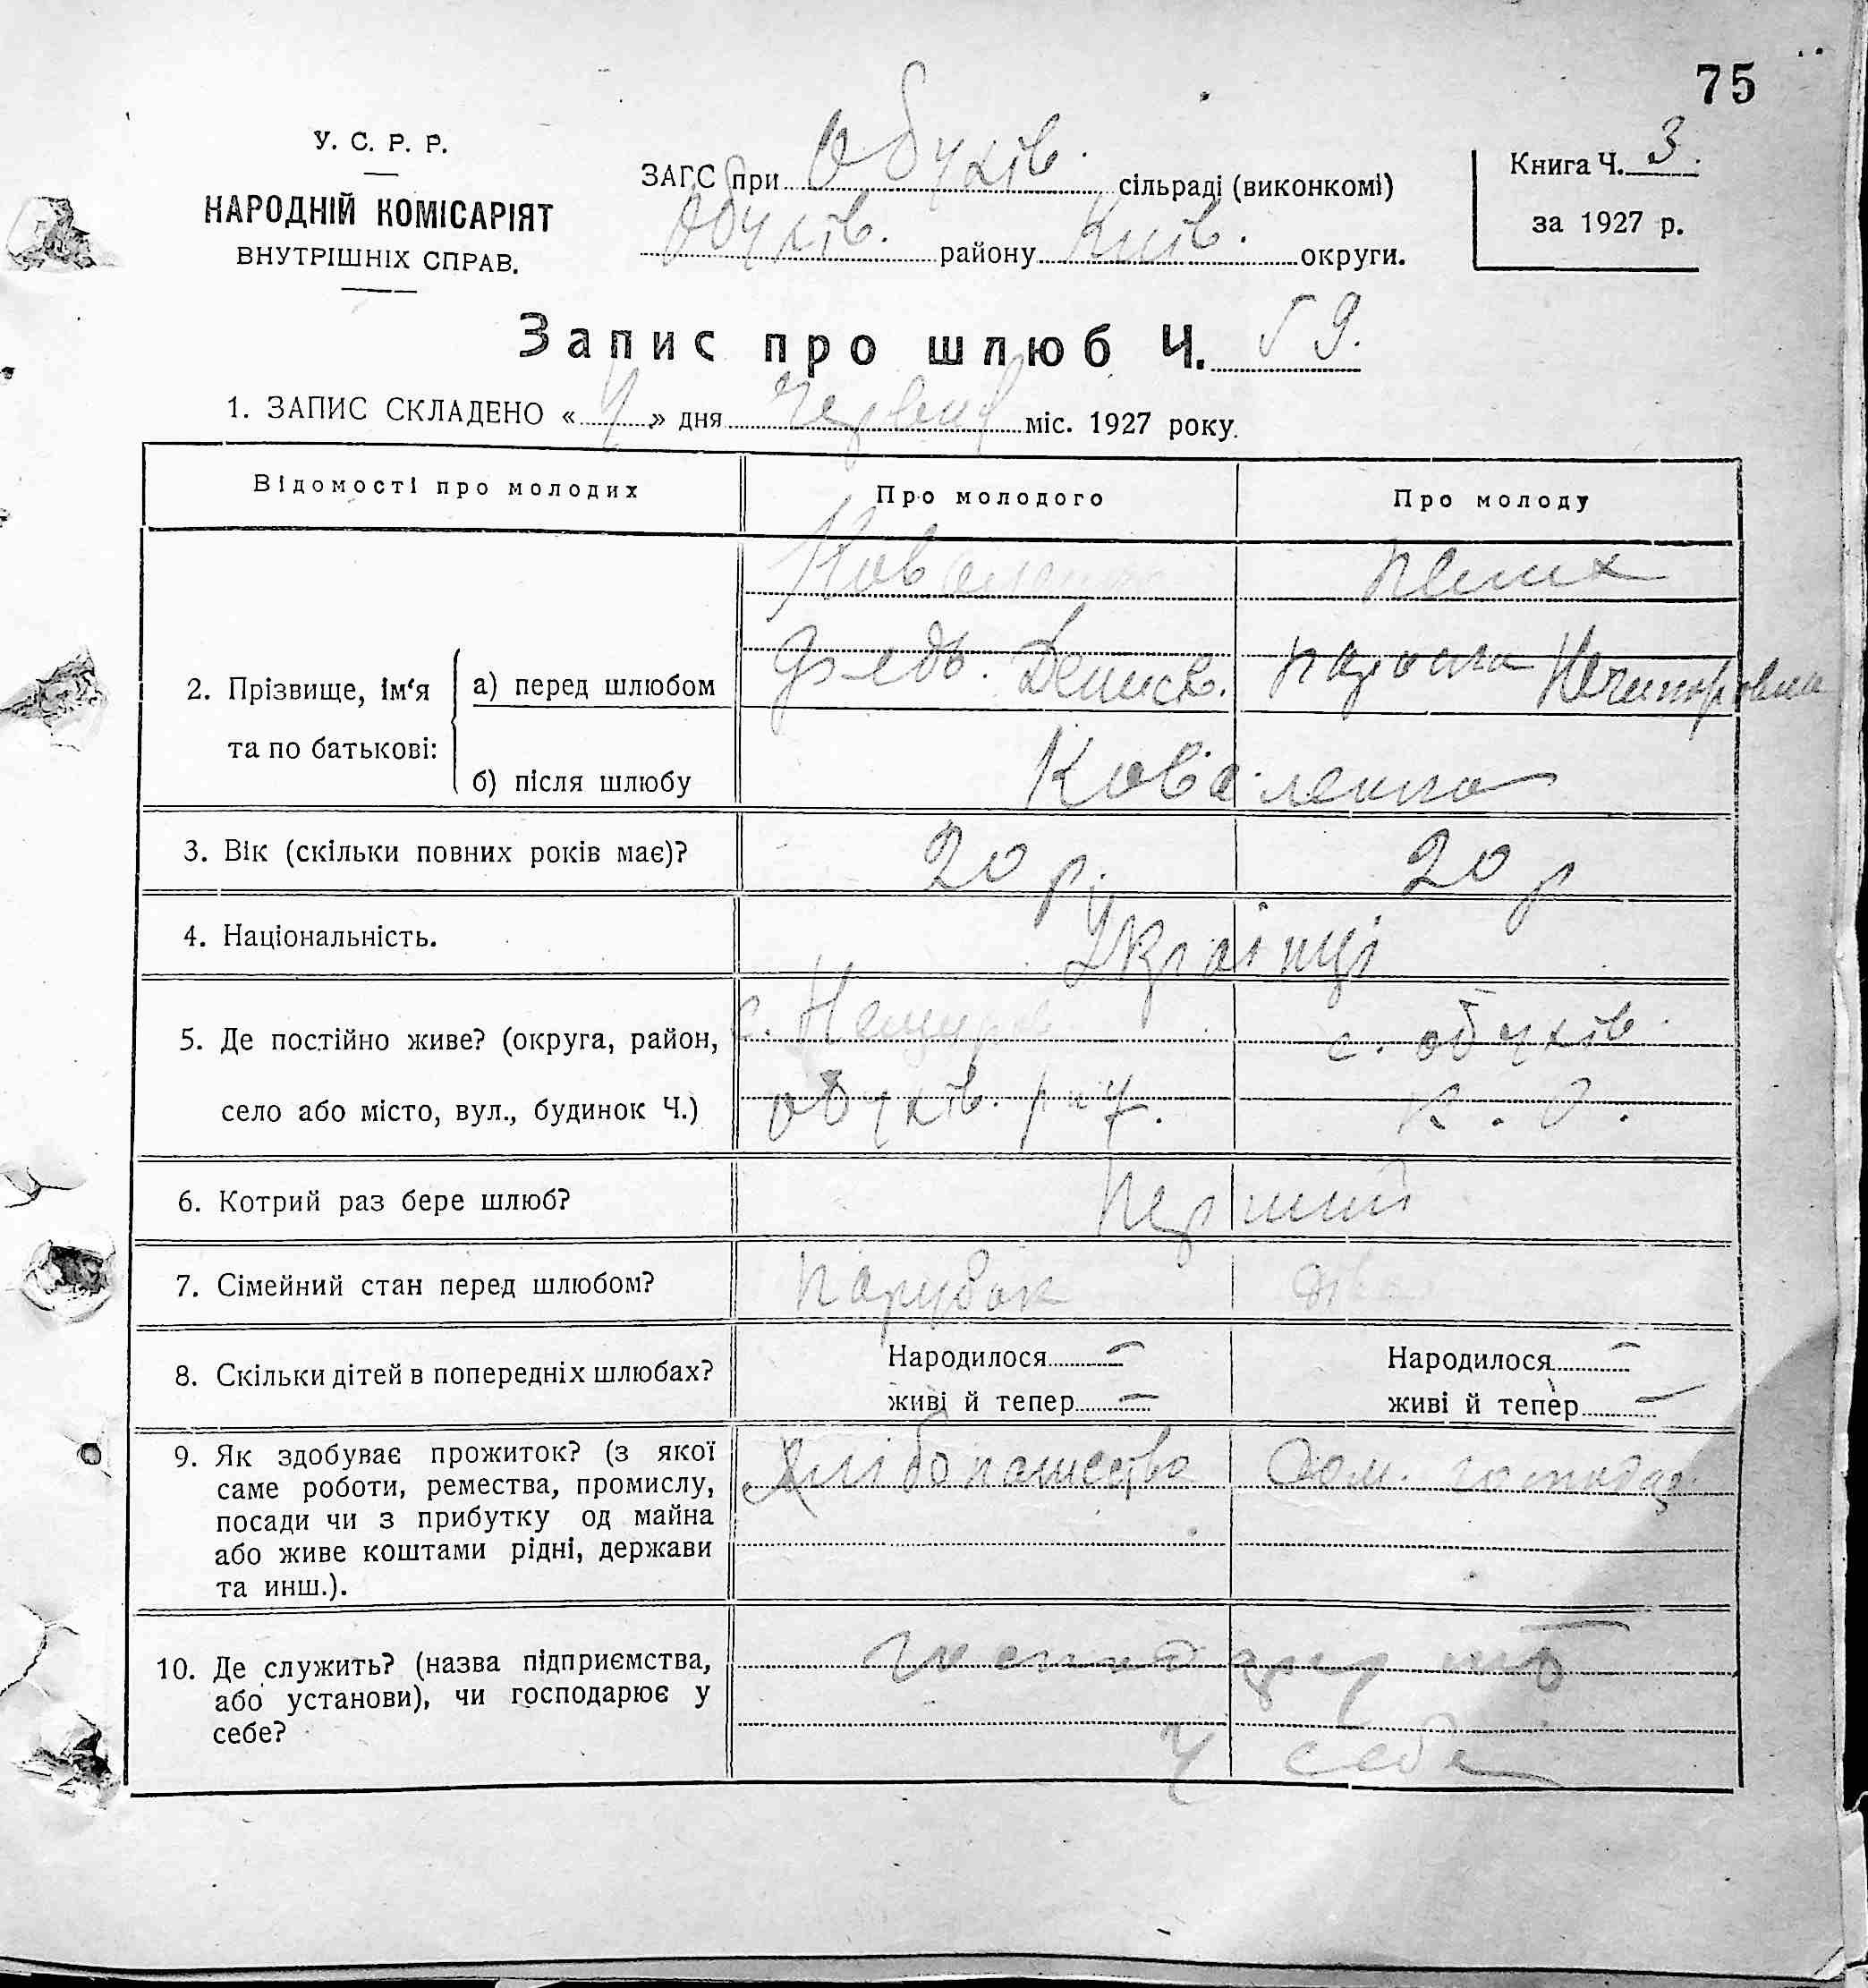 75
У. С. Р. Р.
НАРОДНІЙ КОМІСАРІЯТ
ВНУТРІШНІХ СПРАВ.
ЗАГС при Обухів. сільраді (виконкомі)
Обухів. району Київ. округи.
Книга Ч. 3.
за 1927 р.
Запис про шлюб Ч. 59.
1. ЗАПИС СКЛАДЕНО « » дня Червня міс. 1927 року.
Відомості про молодих Про молодого Про молоду
2. Прізвище, ім‘я та по батькові:
а) перед шлюбом
Коваленко
Федь. Денисов.
Параска Нечипоровна
б) після шлюбу Коваленко
3. Вік (скільки повних років має)? 20 р. 20 р
4. Національність. Українці
5. Де постійно живе? (округа, район,
село або місто, вул., будинок Ч.)
с. Нещерів
обухів. р-ну.
с. обухів.
К. О.
6. Котрий раз бере шлюб? Перший
7. Сімейний стан перед шлюбом? Парубок
8. Скільки дітей в попередніх шлюбах? Народилося — Народилося —
живі й тепер — живі й тепер —
9. Як здобуває прожиток? (з якої
саме роботи, ремества, промислу,
посади чи з прибутку од майна
або живе коштами рідні, держави
та инш.).
Хлібопашество Дом. господар.
10. Де служить? (назва підприємства,
або установи), чи господарює у
себе?
у себе